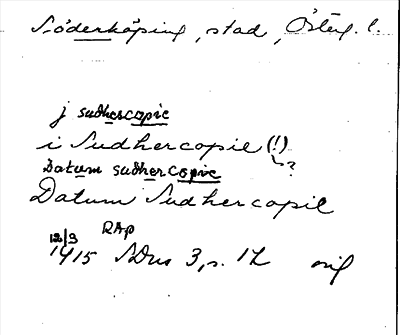 Söderköping, stad, Österg. l.
j sudhercopie
i Sudhercopie (!)
?
Datum sudhercopie
Datum Sudhercopie
12/3 RAp
1415 SDns 3, s. 12 orig